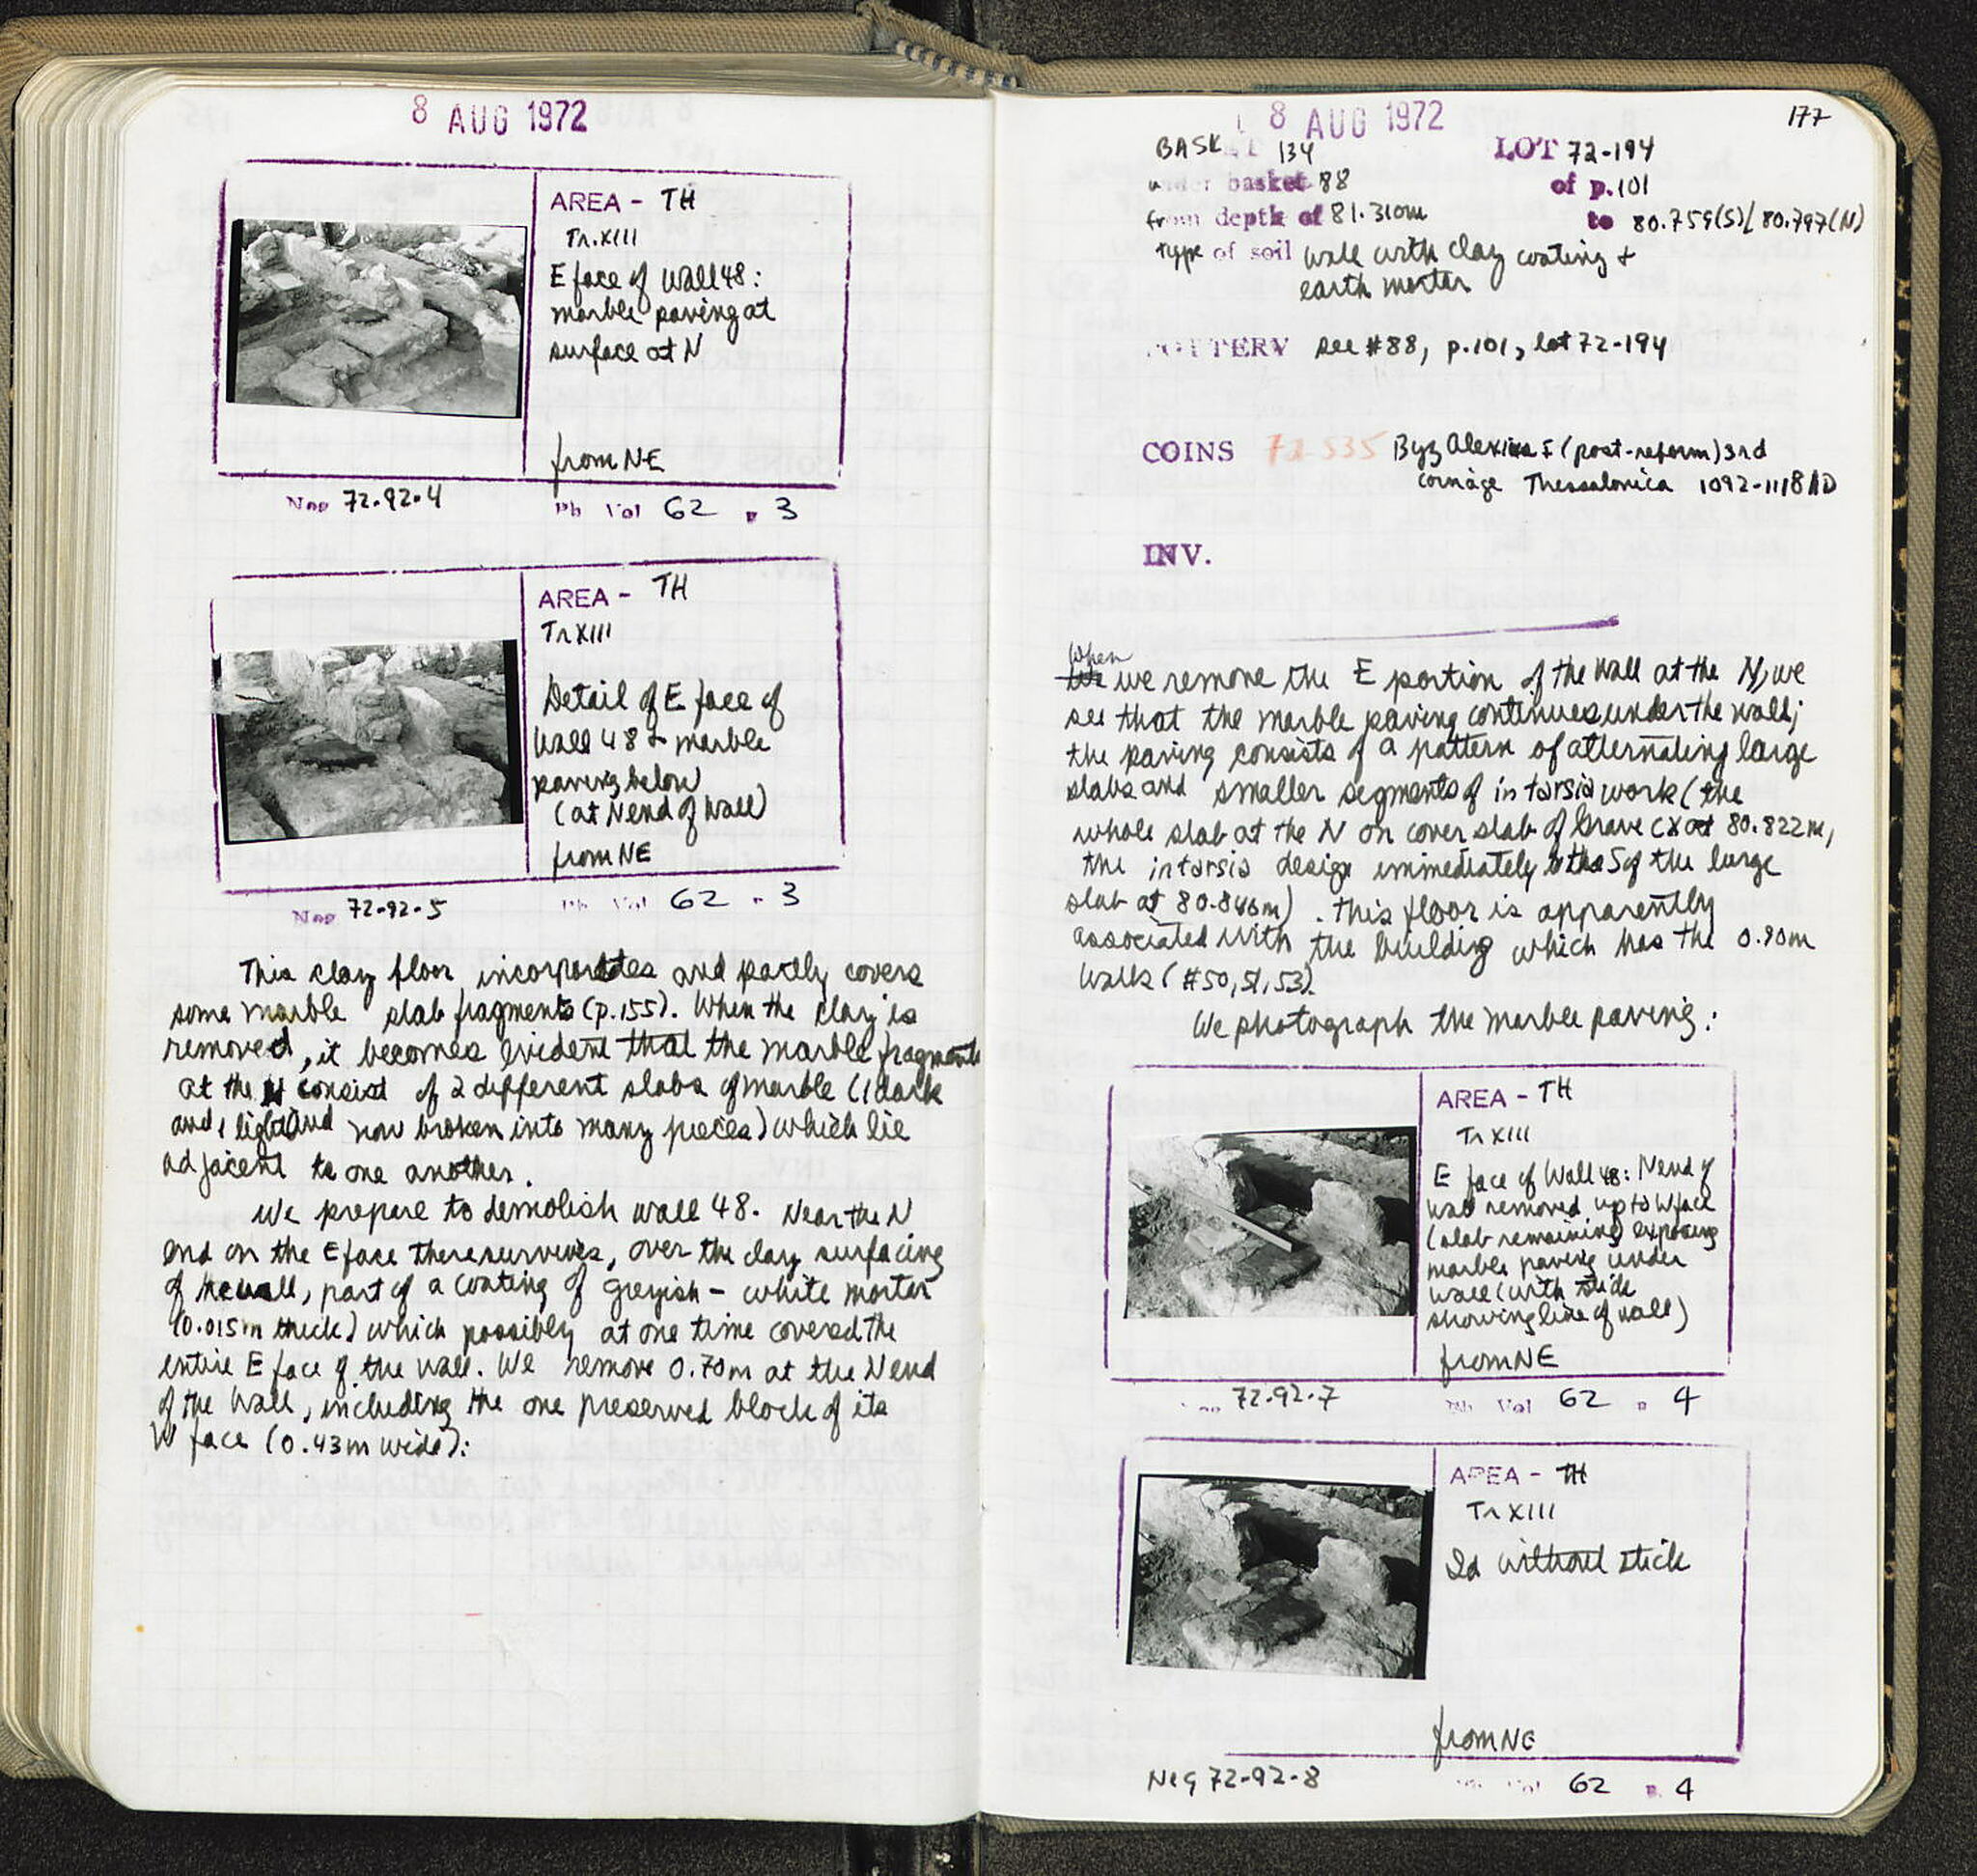 8 AUG 1972
AREA - TH
Tr. XIII
E face of Wall 48:
marble paving at
surface at N
from NE
Neg 72-92-4
Ph Vol 62 p 3
AREA - TH
Tr XIII
Detail of E face of
Wall 48 + marble
paving below
(at N end of Wall)
from NE
Neg 72-92-5
Ph Vol 62 p 3
This clay floor incorporates and partly covers
some marble slab fragments (p.155). When the clay is
removed, it becomes evident that the marble fragments
at the N consist of 2 different slabs of marble (1 dark
and 1 light and now broken into many pieces) which lie
adjacent to one another.
We prepare to demolish wall 48. Near the N
end on the E face there survives, over the clay surfacing
of the wall, part of a coating of greyish - white mortar
(0.015m thick) which possibly at one time covered the
entire E face of the wall. We remove 0.70m at the N end
of the Wall, including the one preserved block of its
W face (0.43m wide):
8 AUG 1972
177
BASKET 134 LOT 72-194
under basket 88 of p. 101
from depth of 81.310m to 80.759(S)/80.797(N)
type of soil wall with clay coating +
earth mortar
POTTERY see #88, p.101, lot 72-194
COINS 72-535 Byz Alexius I (post-reform) 3rd
coinage Thessalonica 1092-1118 AD
INV.
When
we remove the E portion of the wall at the N, we
see that the marble paving continues under the wall;
the paving consists of a pattern of alternating large
slabs and smaller segments of intarsia work (the
whole slab at the N on cover slab of Grave CX at 80.822m,
the intarsia design immediately to the S of the large
slab at 80.846m). This floor is apparently
associated with the building which has the 0.90m
walls (#50, 51, 53).
We photograph the marble paving:
AREA - TH
Tr XIII
E face of Wall 48: N end of
wall removed up to W face
(slab remaining) exposing
marble paving under
wall (with stick
showing line of wall)
from NE
72-92-7
Ph Vol 62 p 4
AREA - TH
Tr XIII
Id without stick
from NE
Neg 72-92-8
Ph Vol 62 p. 4